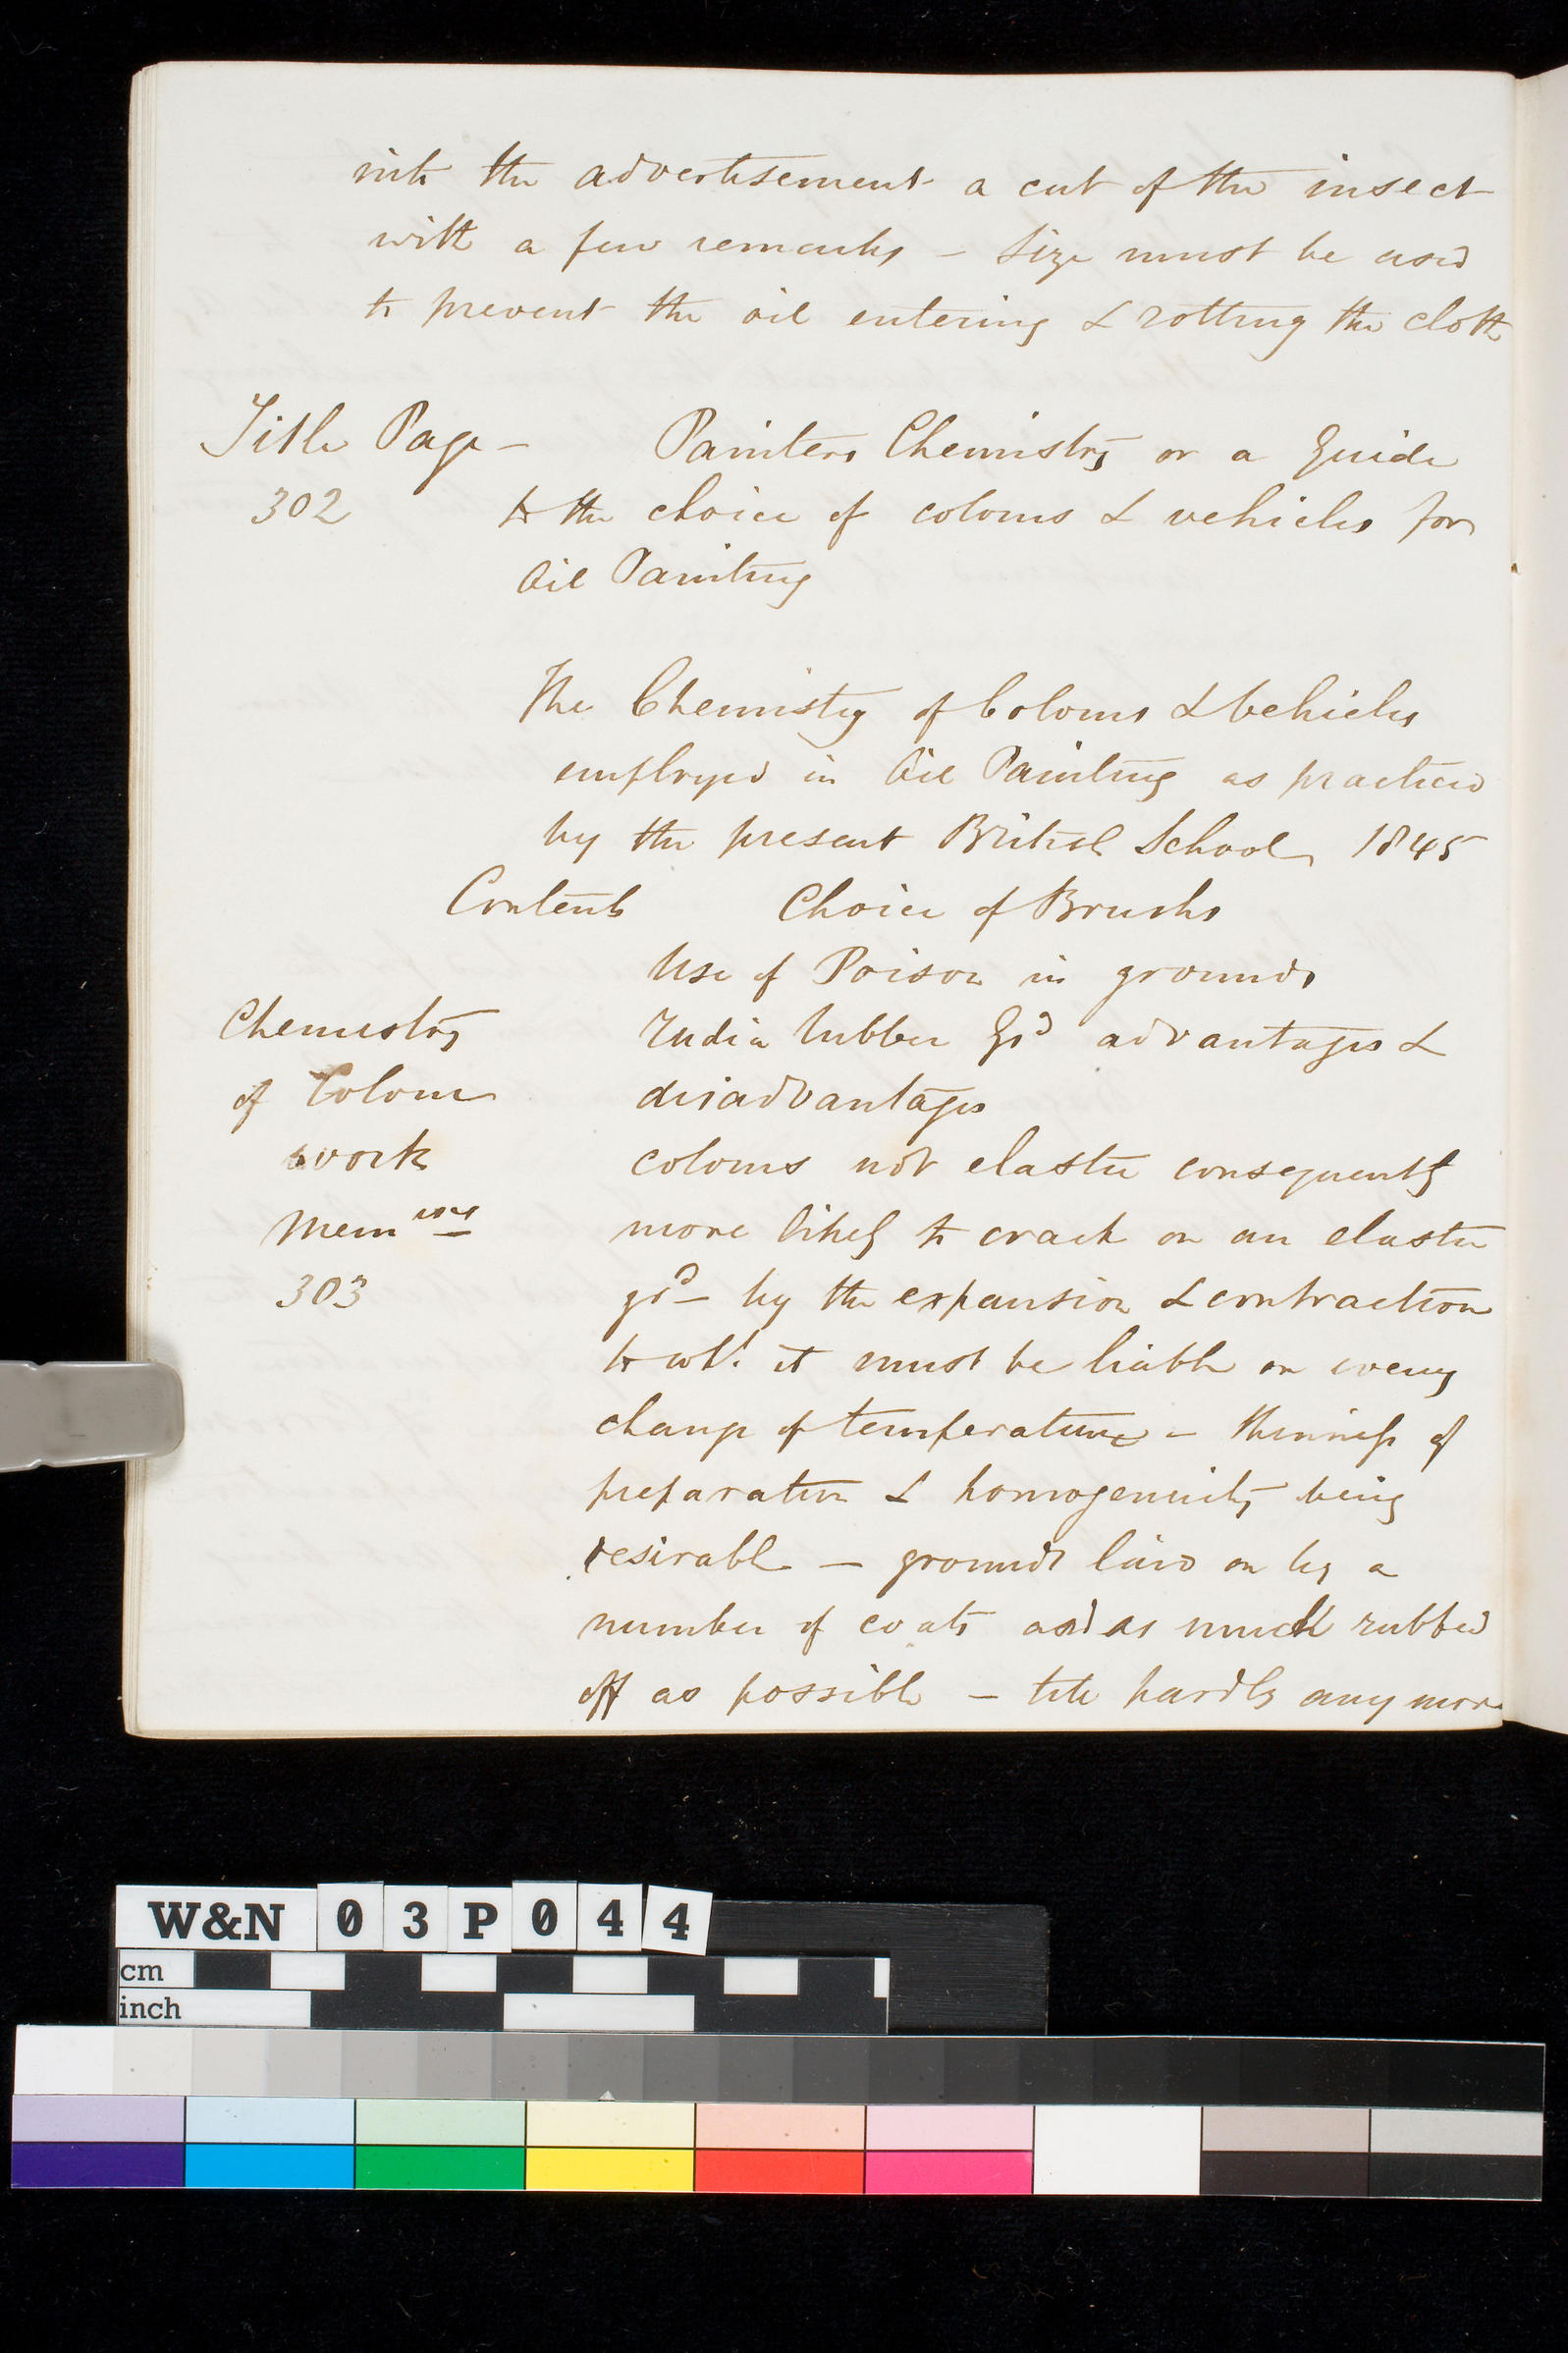 into the advertisement a cut of the insect
with a few remarks – Size must be used
to prevent the oil entering & rotting the cloth
Title Page – Painters Chemistry or a Guide
302 to the choice of colours & vehicles for
Oil Painting
The Chemistry of Colours & Vehicles
employed in Oil Painting as practiced
by the present British School 1845
Contents Choice of Brushes
Use of Poison in grounds
Chemistry India Rubber Grd advantages &
of Colour disadvantages
work colours not elastic consequently
Mem more likely to crack on an elastic
303 grd – by the expansion & contraction
to wh. it must be liable on every
change of temperature – thinness of
preparation & homogeneity being
desirable – grounds laid on by a
number of coats and as much rubbed
off as possible – till hardly any more
W&N 03P044
cm
inch